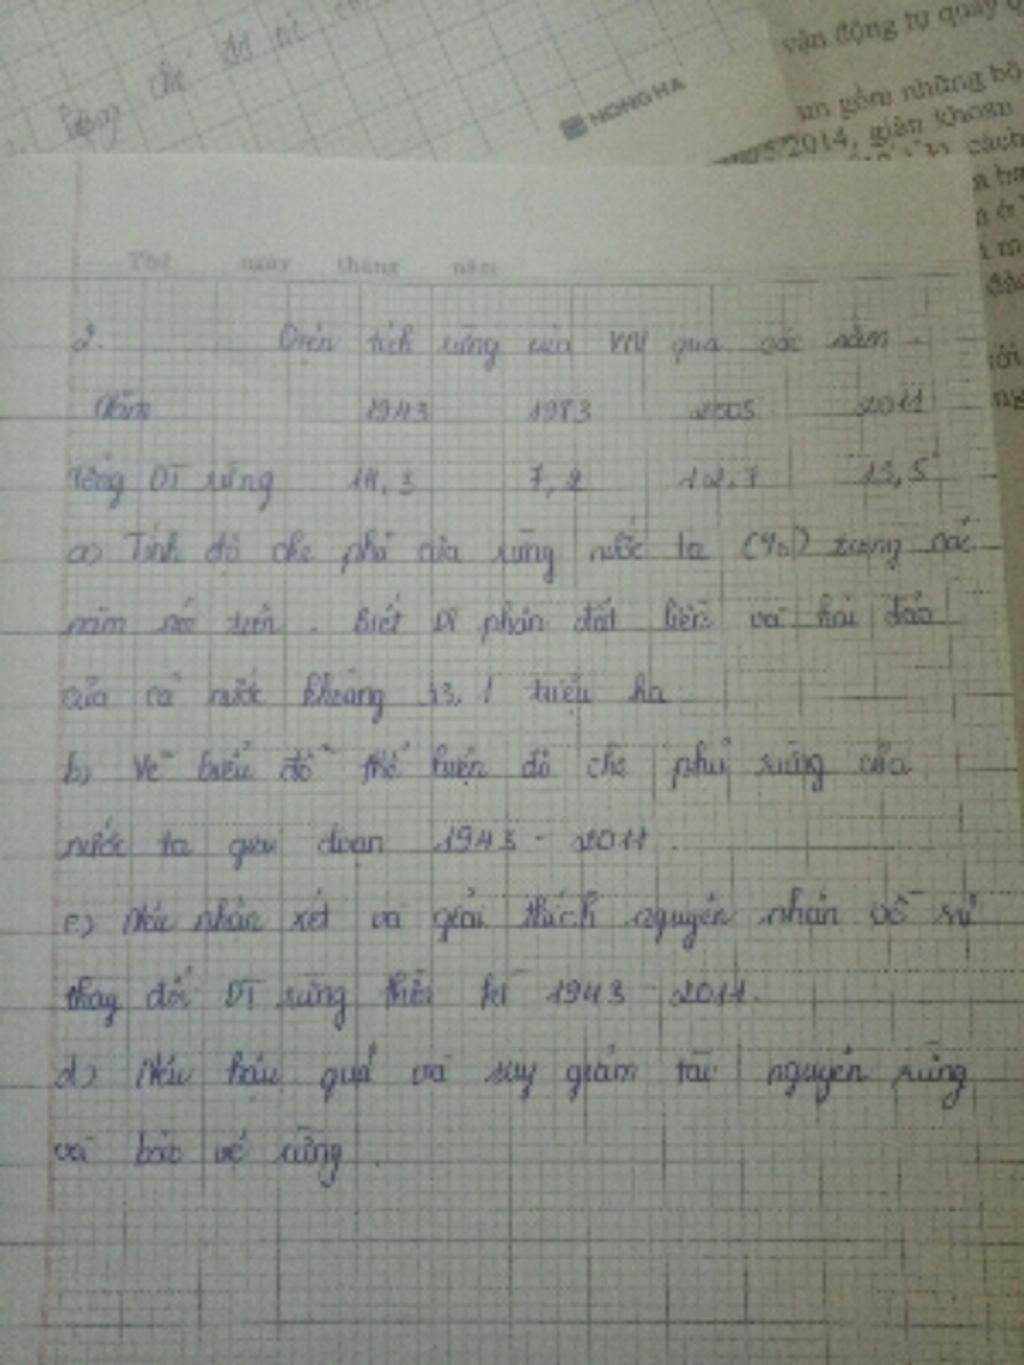 chế độ
HONG HA
vận động tự quay
gồm những bộ
2014, gián
cách
Thứ ngày tháng năm
2. Diện tích rừng của VN qua các năm.
Năm 1943 1983 2005 2011
Tổng DT rừng 14,3 7,2 12,7 13,5
a) Tính độ che phủ của rừng nước ta (%) trong các
năm nói trên. Biết DT phần đất liền và hải đảo
của cả nước khoảng 33,1 triệu ha
b) Vẽ biểu đồ thể hiện độ che phủ rừng của
nước ta giai đoạn 1943 - 2011
c) Nêu nhận xét và giải thích nguyên nhân về sự
thay đổi DT rừng thời kì 1943 - 2011.
d) Nêu hậu quả và suy giảm tài nguyên rừng
và bảo vệ rừng.